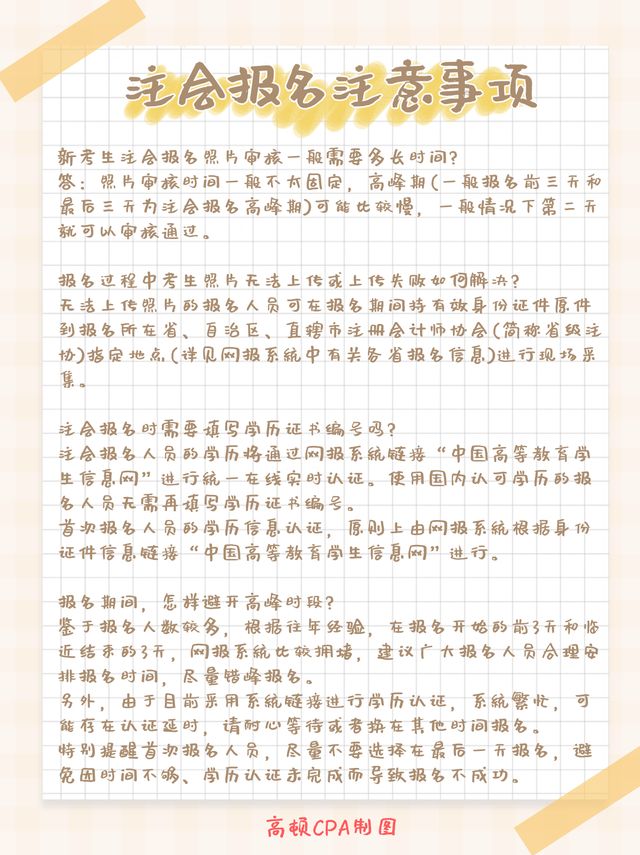 注会报名注意事项
新考生注会报名照片审核一般需要多长时间?
答：照片审核时间一般不太固定，高峰期(一般报名前三天和
最后三天为注会报名高峰期)可能比较慢，一般情况下第二天
就可以审核通过。
报名过程中考生照片无法上传或上传失败如何解决?
无法上传照片的报名人员可在报名期间持有效身份证件原件
到报名所在省、自治区、直辖市注册会计师协会(简称省级注
协)指定地点(详见网报系统中有关各省报名信息)进行现场采
集。
注会报名时需要填写学历证书编号吗?
注会报名人员的学历将通过网报系统链接“中国高等教育学
生信息网”进行统一在线实时认证。使用国内认可学历的报
名人员无需再填写学历证书编号。
首次报名人员的学历信息认证，原则上由网报系统根据身份
证件信息链接“中国高等教育学生信息网”进行。
报名期间，怎样避开高峰时段?
鉴于报名人数较多，根据往年经验，在报名开始的前3天和临
近结束的3天，网报系统比较拥堵，建议广大报名人员合理安
排报名时间，尽量错峰报名。
另外，由于目前采用系统链接进行学历认证，系统繁忙，可
能存在认证延时，请耐心等待或者换在其他时间报名。
特别提醒首次报名人员，尽量不要选择在最后一天报名，避
免因时间不够、学历认证未完成而导致报名不成功。
高顿CPA制图